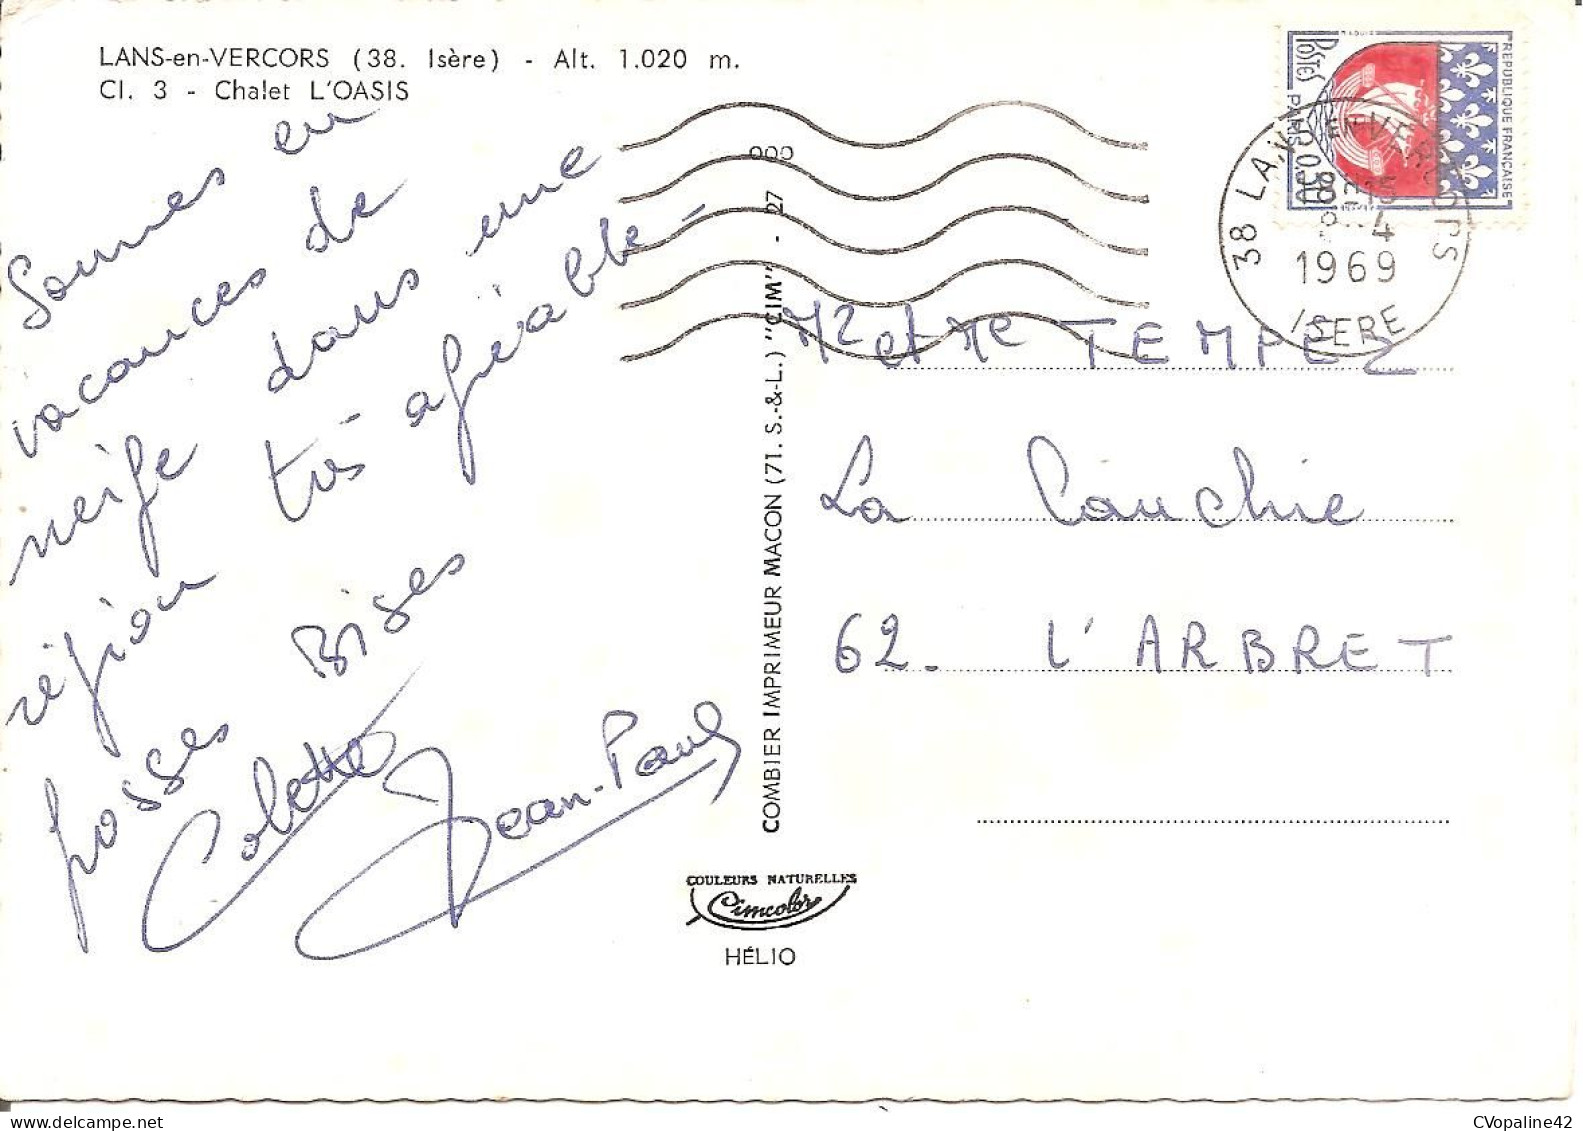 LANS-en-VERCORS (38. Isère) - Alt. 1.020 m.
Cl. 3 - Chalet L'OASIS
Sommes en
vacances de
neige dans une
région très agréable
grosses Bises
Colette Jean-Paul
COMBIER IMPRIMEUR MACON (71. S.-&-L.) "CIM" - 27
COULEURS NATURELLES
Cimcolor
HÉLIO
REPUBLIQUE FRANÇAISE
POSTES
PARIS 0,30
38 LANS EN VERCORS
1969
ISERE
Mr et Me TEMPEZ
La Cauchie
62. L'ARBRET
CVopaline42